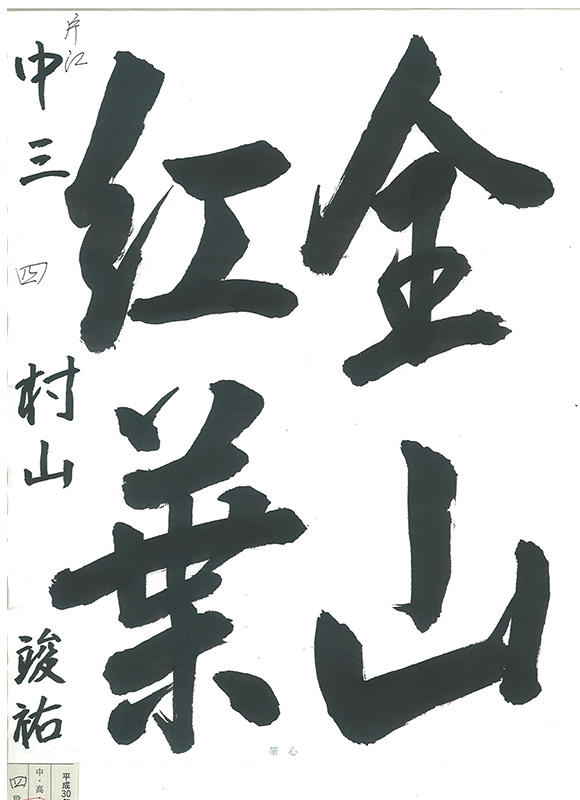 全山
紅葉
片江
中三 四 村山 竣祐
心筆
平成30
中・高
四